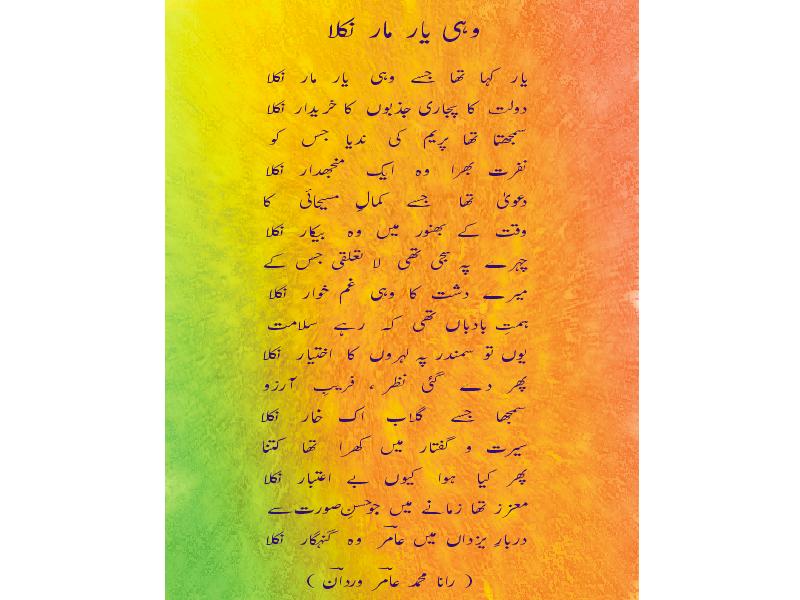 وہی یار مار نکلا
یار کہا تھا جسے وہی یار مار نکلا
دولت کا پجاری جذبوں کا خریدار نکلا
سمجھتا تھا پریم کی ندیا جس کو
نفرت بھرا وہ ایک منجھدار نکلا
دعویٰ تھا جسے کمالِ مسیحائی کا
وقت کے بھنور میں وہ بیکار نکلا
چہرے پہ سجی تھی لا تعلقی جس کے
میرے دشت کا وہی غم خوار نکلا
ہمتِ بادباں تھی کہ رہے سلامت
یوں تو سمندر پہ لہروں کا اختیار نکلا
پھر دے گئی نظر ، فریبِ آرزو
سمجھا جسے گلاب اک خار نکلا
سیرت و گفتار میں کھرا تھا کتنا
پھر کیا ہوا کیوں بے اعتبار نکلا
معزز تھا زمانے میں جو حسنِ صورت سے
دربارِ یزداں میں عامر وہ گنہگار نکلا
( رانا محمد عامر وردان )